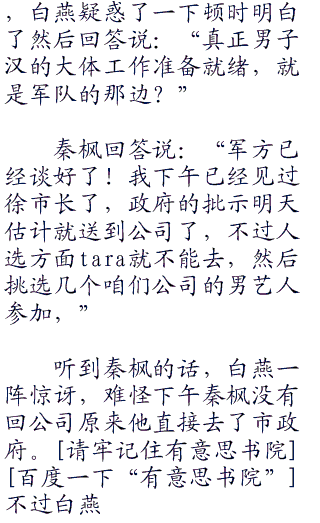 ，白燕疑惑了一下顿时明白
了然后回答说：“真正男子
汉的大体工作准备就绪，就
是军队的那边？”
秦枫回答说：“军方已
经谈好了！我下午已经见过
徐市长了，政府的批示明天
估计就送到公司了，不过人
选方面tara就不能去，然后
挑选几个咱们公司的男艺人
参加，”
听到秦枫的话，白燕一
阵惊讶，难怪下午秦枫没有
回公司原来他直接去了市政
府。[请牢记住有意思书院]
[百度一下“有意思书院”]
不过白燕